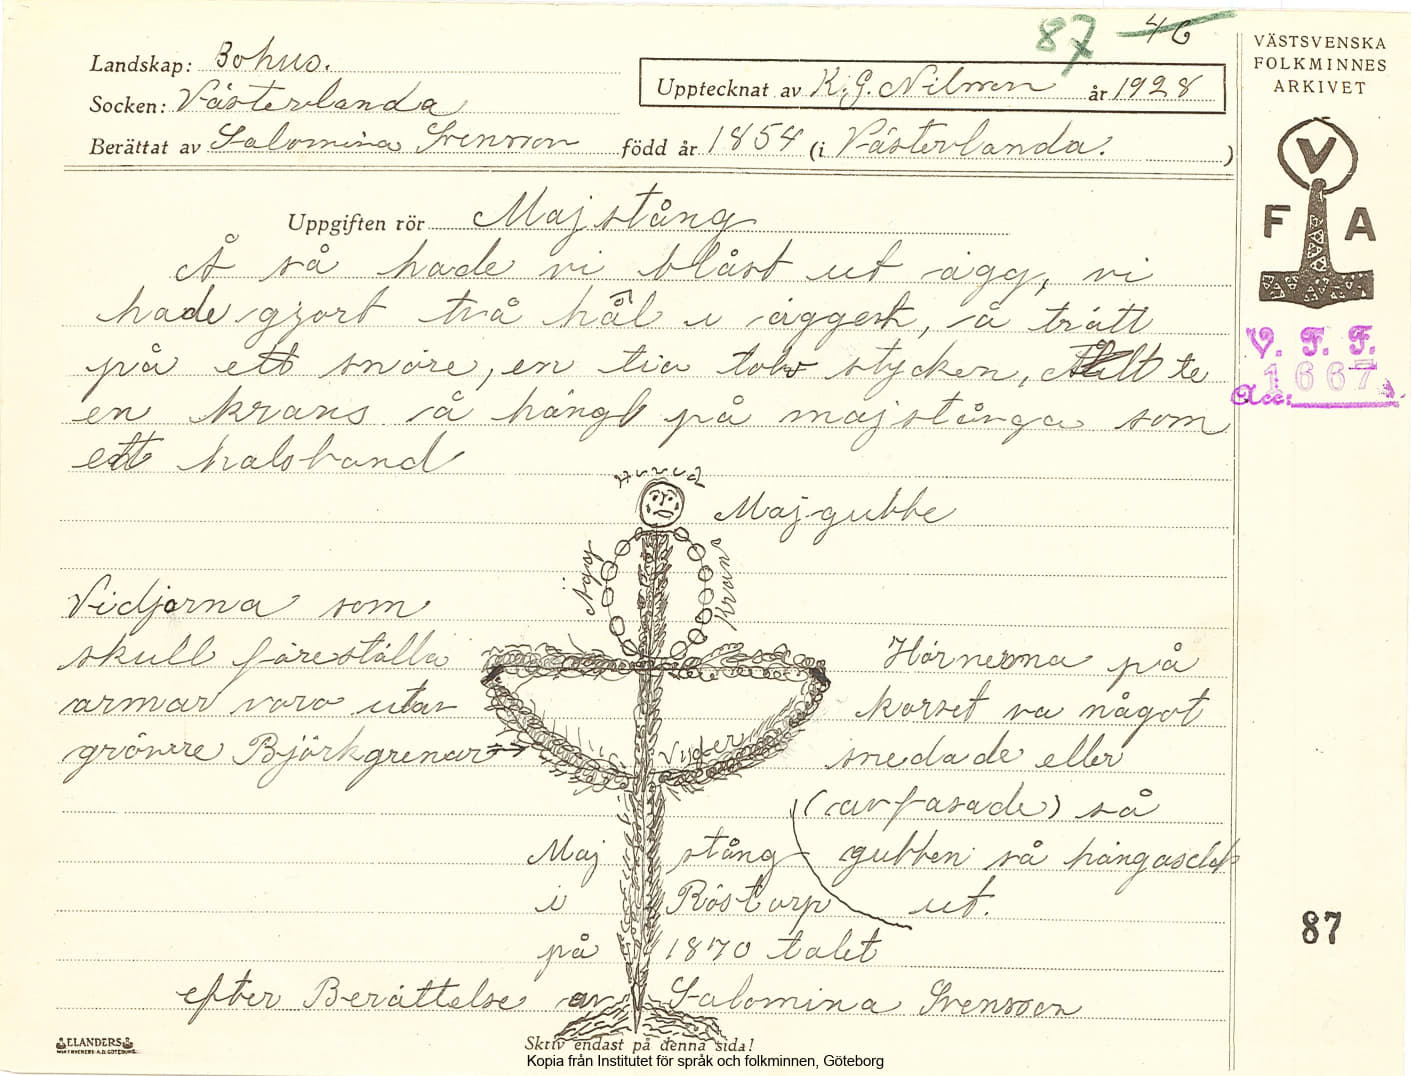 87 46
VÄSTSVENSKA
FOLKMINNES
ARKIVET
Landskap: Bohus.
Upptecknat av K.G. Nilsson år 1928
Socken: Västerlanda
Berättat av Salomina Svensson född år 1854 (i Västerlanda. )
V
F A
Uppgiften rör Majstång
Å så hade vi blåst ut ägg, vi
hade gjort två hål i äggest, å trätt
på ett snöre, en tia tolv stycken, ställt te
en krans å hängt på majstånga som
ett halsband
V. F. F.
Acc: 1667
Majgubbe
Ägg
Krans
Vidjorna som
skull föreställa
armar voro utav
grövrre Björkgrenar
Vidjer
Hörnerna på
korset va något
snedade eller
(avfasade) så
gubben så hängaselat
ut.
Maj stång
i Röstorp
på 1870 talet
efter Berättelse av Salomina Svensson
87
ELANDERS
Skriv endast på denna sida!
Kopia från Institutet för språk och folkminnen, Göteborg